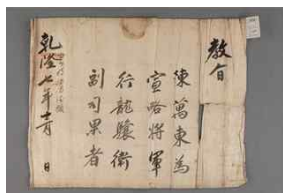 教旨
陳萬東爲
宣略將軍
行龍驤衛
副司果者
乾隆七年十二月 日